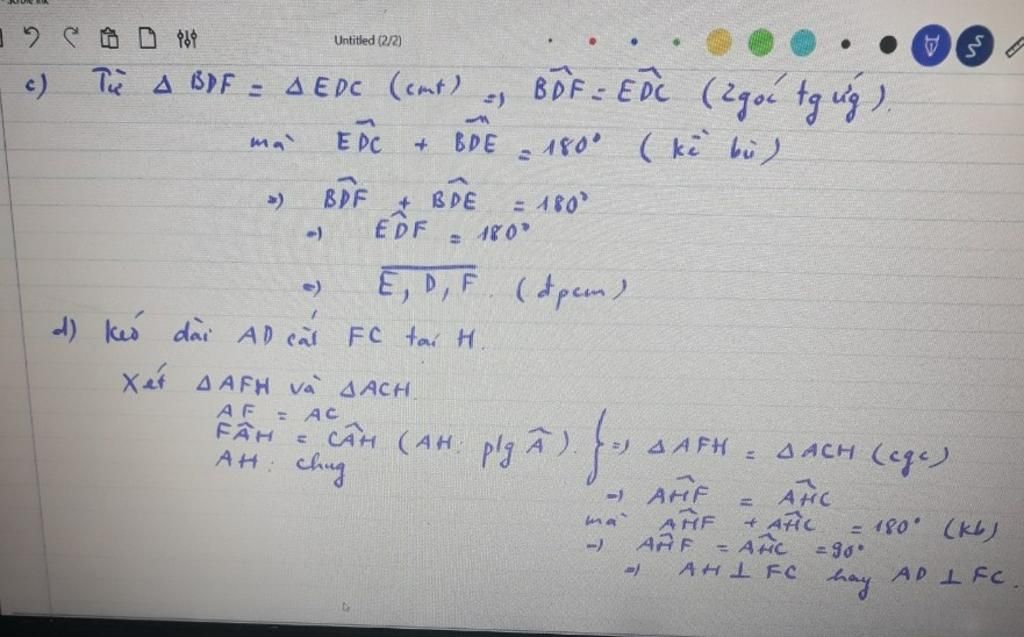 Untitled (2/2)
c) Từ Δ BDF = Δ EDC (cmt) => BDF̂ = EDĈ (2 góc tg ứg).
mà EDĈ + BDÊ = 180° (kề bù)
=> BDF̂ + BDÊ = 180°
=> ED̂F = 180°
=> E, D, F (đpcm)
d) Kéo dài AD cắt FC tại H.
Xét ΔAFH và ΔACH
AF = AC
FÂH = CÂH (AH: plg Â). } => ΔAFH = ΔACH (cgc)
AH: chug
=> AĤF = AĤC
mà AĤF + AĤC = 180° (kb)
=> AĤF = AĤC = 90°
=> AH ⊥ FC hay AD ⊥ FC.